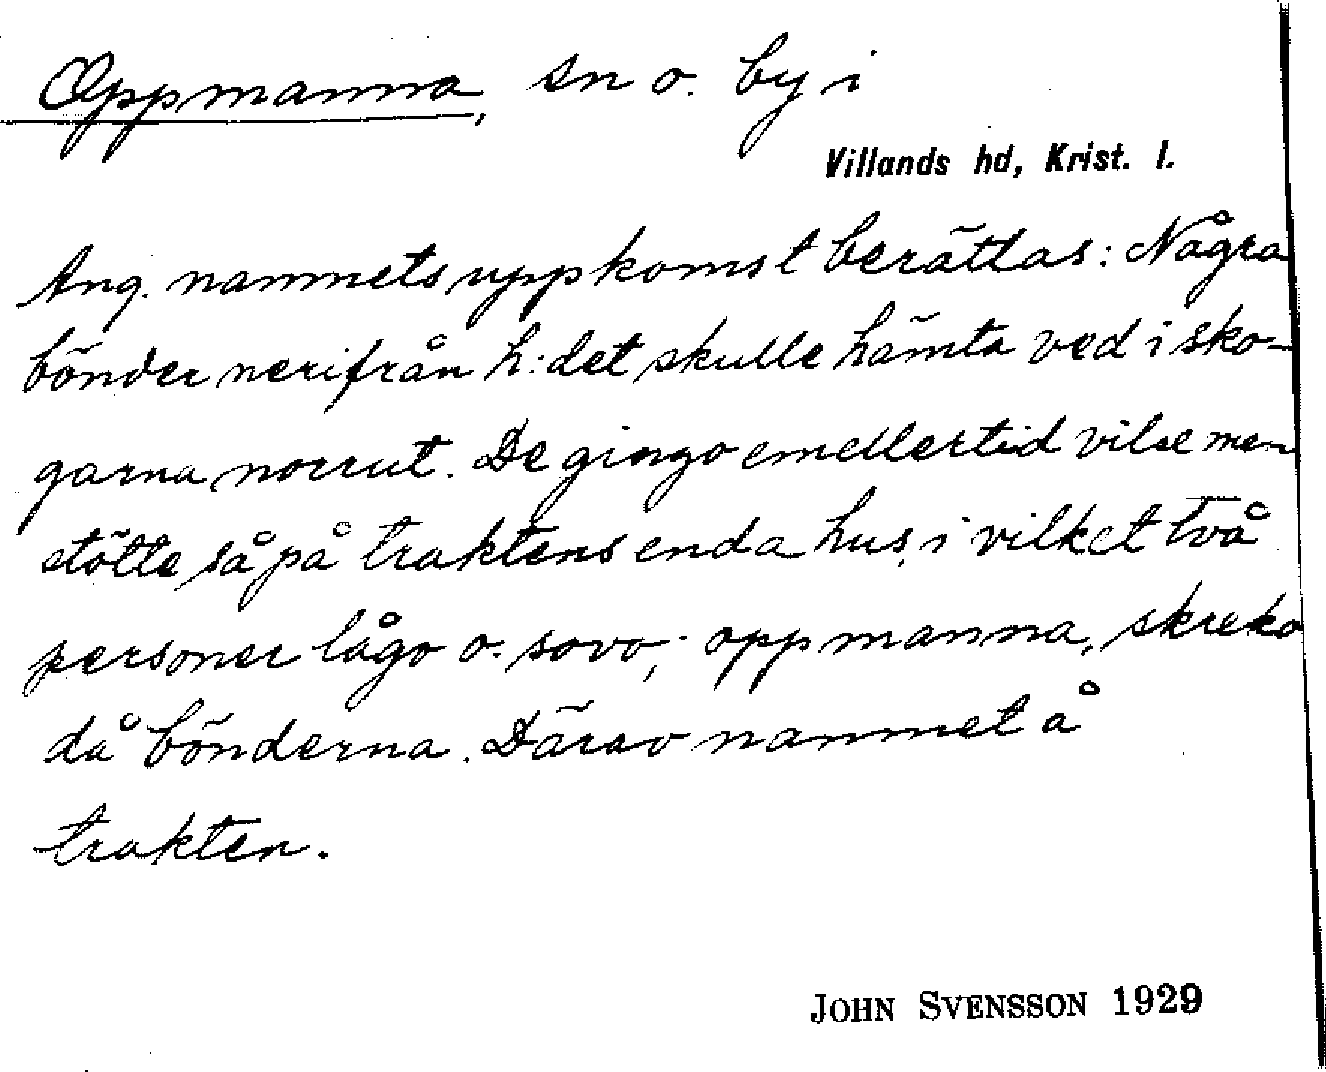 Oppmanna, sn o. by i
Villands hd, Krist. l.
Ang. namnets uppkomst berättas: Några
bönder nerifrån h:det skulle hämta ved i sko-
garna norrut. De gingo emellertid vilse men
stötte så på traktens enda hus, i vilket två
personer lågo o. sovo; oppmanna, skreko
då bönderna. Därav namnet å
trakten.
JOHN SVENSSON 1929